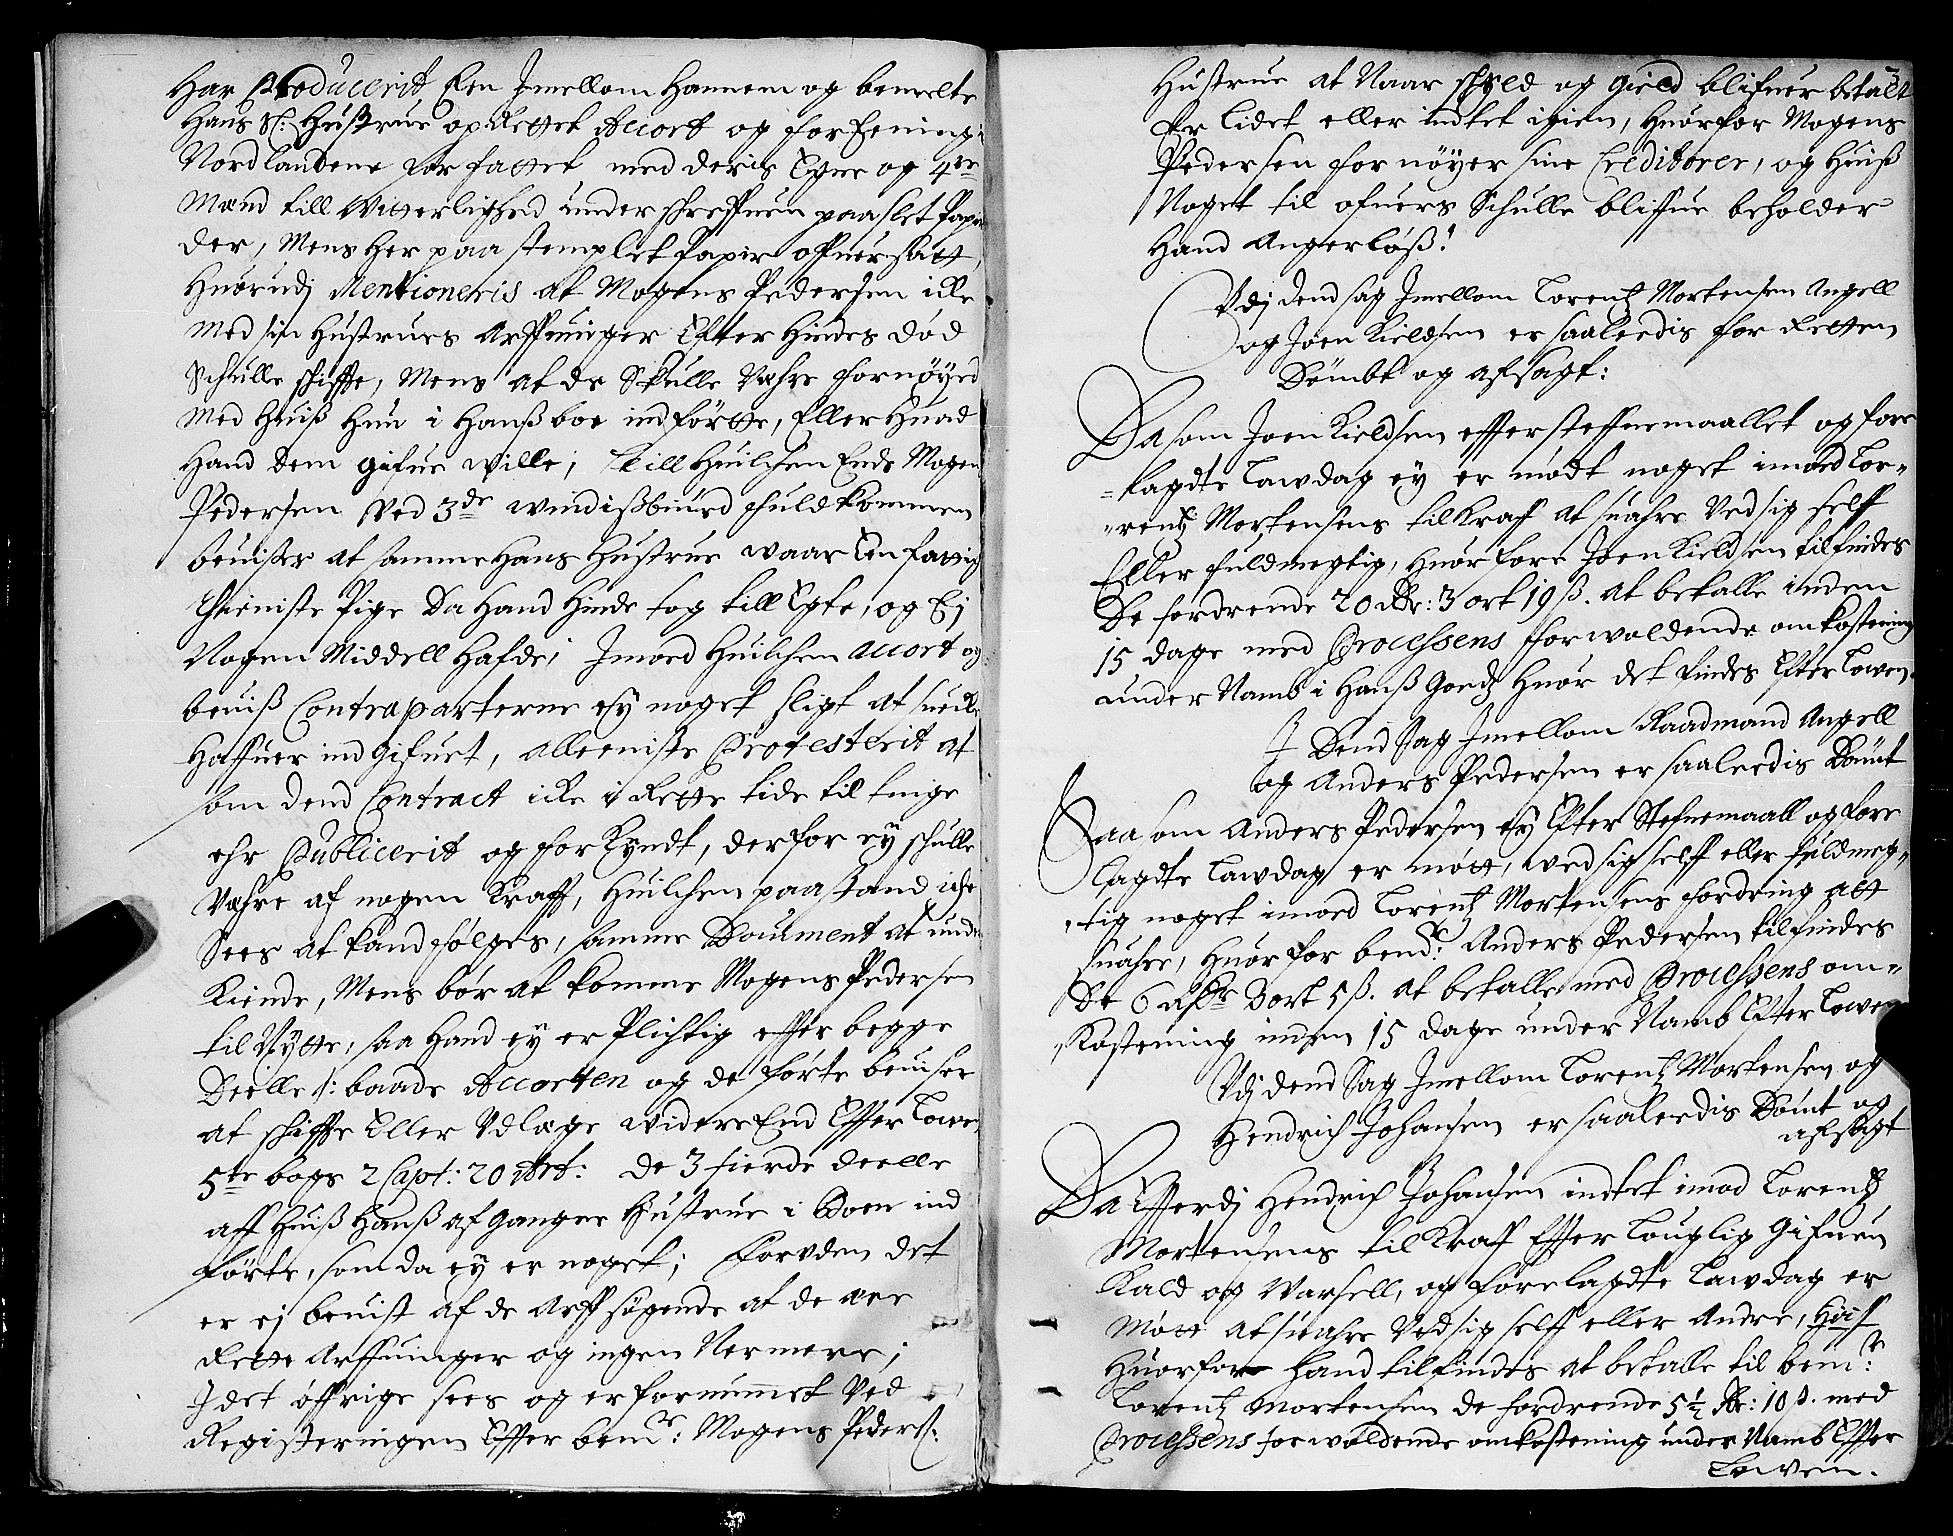 Har Producerit Een Jmellom Hannem og bemelte
Hans Sl: Hustrue oprettet Accort og forEening i
Nordlandene forfattet med deris Egne og 4re
Mænd till Witterlighed underschreffuen paa slet Papir
der, Mens Her paa stemplet Papir offuersatt,
Huorudj Mentioneris at Mogens Pedersen icke
med sin Hustrues Arffuinger Efter Hindes død
Schulle schiffte, Mens at de Skulle Vehre fornøyed
med Huiß Hun i Hanß boe indførte, Eller Huad
Hand dem gifue wille; till Huilchen Ende Mogens
Pedersen Ved 3de windißbiurd fuldkommen
beuißer at samme Hans Hustrue waar Een fattig
thieniste Pige da Hand Hinde tog till Egte, og Ej
Nogen Middell Hafde; Jmoed Huilchen accort og
beuiß Contraparterne ey noget sligt at suecke
Haffuer ind gifuet, alleeniste Protesterit at
som dend Contract icke i Rette tide til tinge
ehr Publicerit og forkyndt, derfor ey schulle
Vehre af nogen Kraff, Huilchen paastand iche
Sees at kand følges, samme Document at under
Kiende, Mens bør at komme Mogens Pedersen
til Nytte, saa Hand ey er Plichtig effter begge
Deelle /: baade Accorten og de førte beuiser
at schiffte Eller Vdlæge widere End Effter Lowe
5te bogs 2 Capt: 20 Art: de 3 fierde deelle
aff Huiß Hanß afgangne Hustrue i Boen ind
førte, som da ey er noget; foruden det
er ej beuist af de Arffsøgende at de ære
Rette Arffuinger og ingen Nermere;
J det øffrige sees og er fornummet Ved
Registeringen Effter bemte: Mogens Peders:
Hustrue at Naar schyld og gield blifuer betalt
Er lidet eller indtet igien, Huorfor Mogens
Pedersen fornøyer sine Creditorer, og Huiß
Noget til ofuers Schulle bliffue beholder
Hand Angerløß!
Vdj dend sag Jmellom Lorentz Mortensen Angell
og Joen Kieldsen er saaleedis for Retten
Dømbt og afsagt:
Da som Joen Kieldsen effter steffnemaallet og fore
=lagdte Lawdag ey er mødt noget imoed Lor-
-rentz Mortensens tilkraf at suahre Ved sig self
Eller fuldmegtig, Huorfore Joen Kieldsen tilfindes
De fordrende 20 Rdr: 3 ort 19 ß. at betalle inden
15 dage med Processens forwoldende omkostening
under Namb i Hanß Goedz Huor det findes Efter Lowen.
J Dend Sag Jmellom Raadmand Angell
og Anders Pedersen er saaleedis Dømt
Saasom Anders Pedersen ey Efter Stefnemaall og fore
lagdte Lawdag er møtt, wed sig selff eller fuldmeg-
-tig noget imoed Lorentz Mortensens fordring att
suahre, Huorfor bemdte: Anders Pedersen tilfindes
De 6 Rdr 3 ort 5 ß. at betalle med Processens om-
-kostening inden 15 dage under Namb Efter Lowen
Vdj dend Sag Jmellom Lorentz Mortensen og
Hendrich Johansen er saaleedis Dømt og
afsagt
Da Effterdj Hendrich Johansen indtet imod Lorentz
Mortensens tilkraf Effter Louglig Gifuen
Kald og Warsell, og forelagdte Lawdag er
Møtt at suahre Ved sig selff eller Andre,
Huorfor Hand tilfindes at betalle til bemte:
Lorentz Mortensen de fordrende 5½ Rdr: 10 ß. med
Processens forwoldende omkostening under Namb Effter
Lowen.